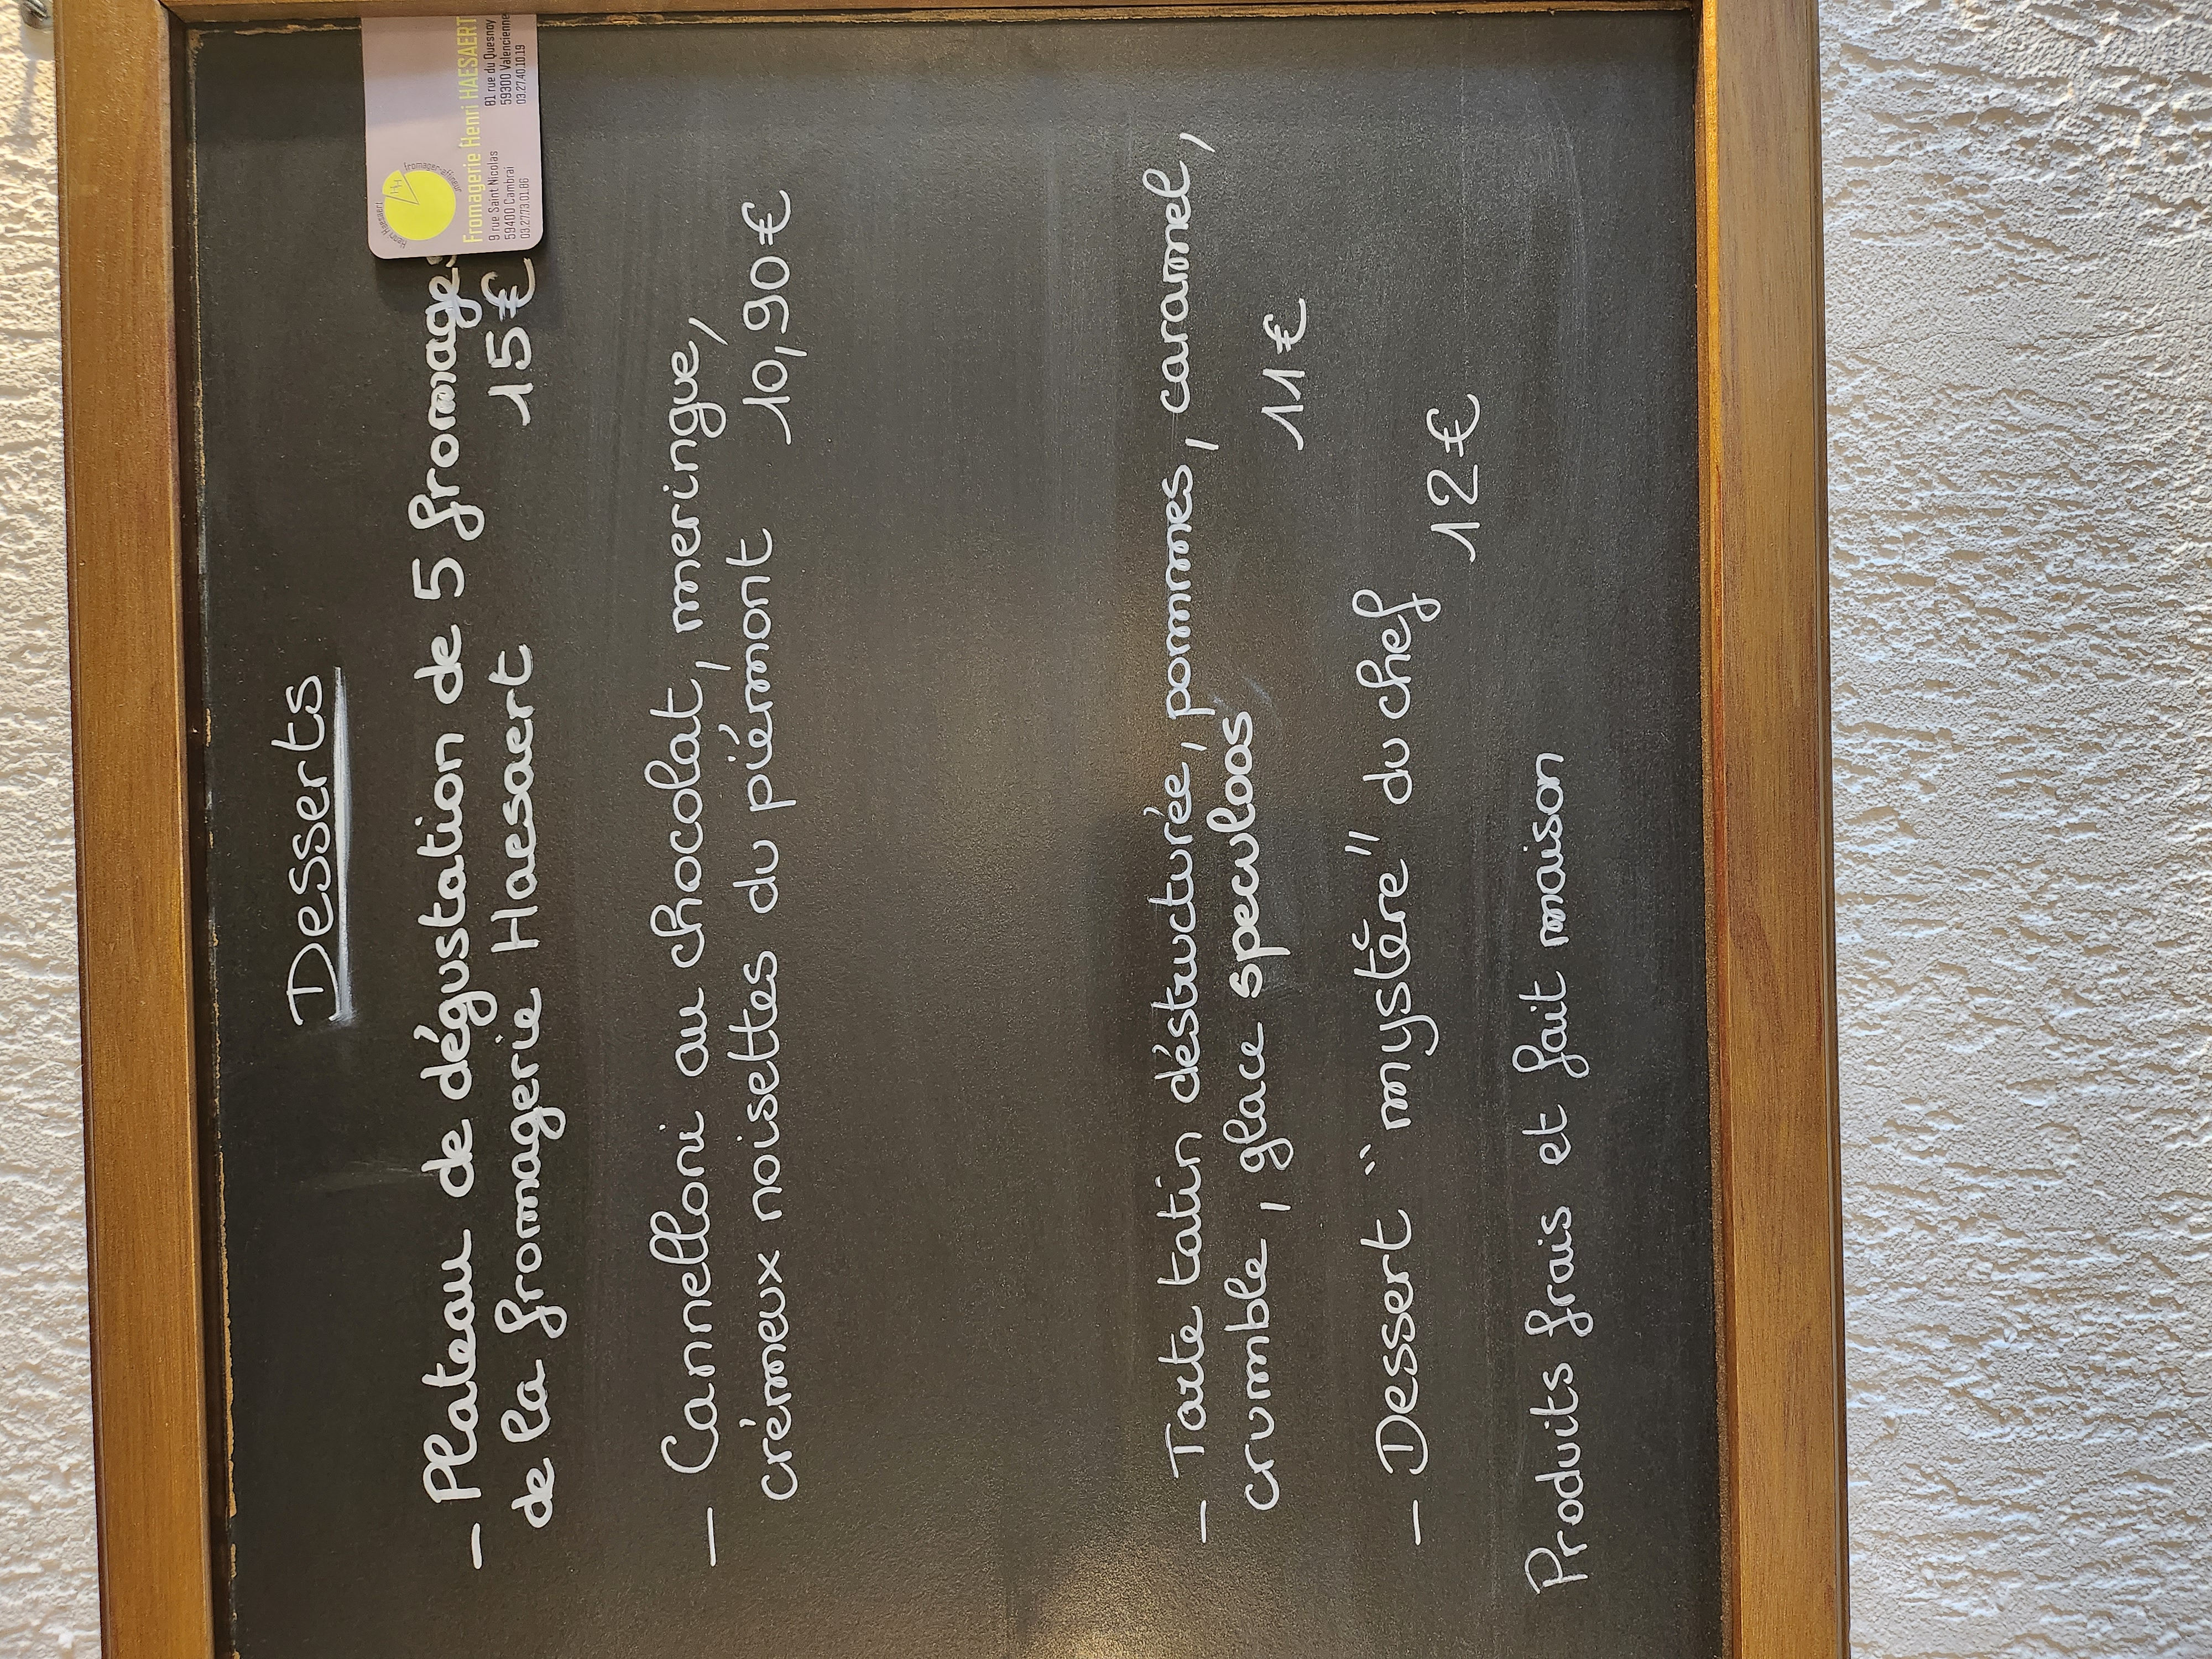 Desserts
- Plateau de dégustation de 5 fromages
de la fromagerie Haesaert 15€
- Cannelloni au chocolat, meringue,
crémeux noisettes du piémont 10,90€
- Tarte tatin déstructurée, pommes, caramel,
crumble, glace speculoos
11€
- Dessert "mystère" du chef 12€
Produits frais et fait maison
Henri Haesaert
fromager-affineur
Fromagerie Henri HAESAERT
9 rue Saint Nicolas
59400 Cambrai
03.27.73.01.86
81 rue du Quesnoy
59300 Valenciennes
03.27.40.10.19